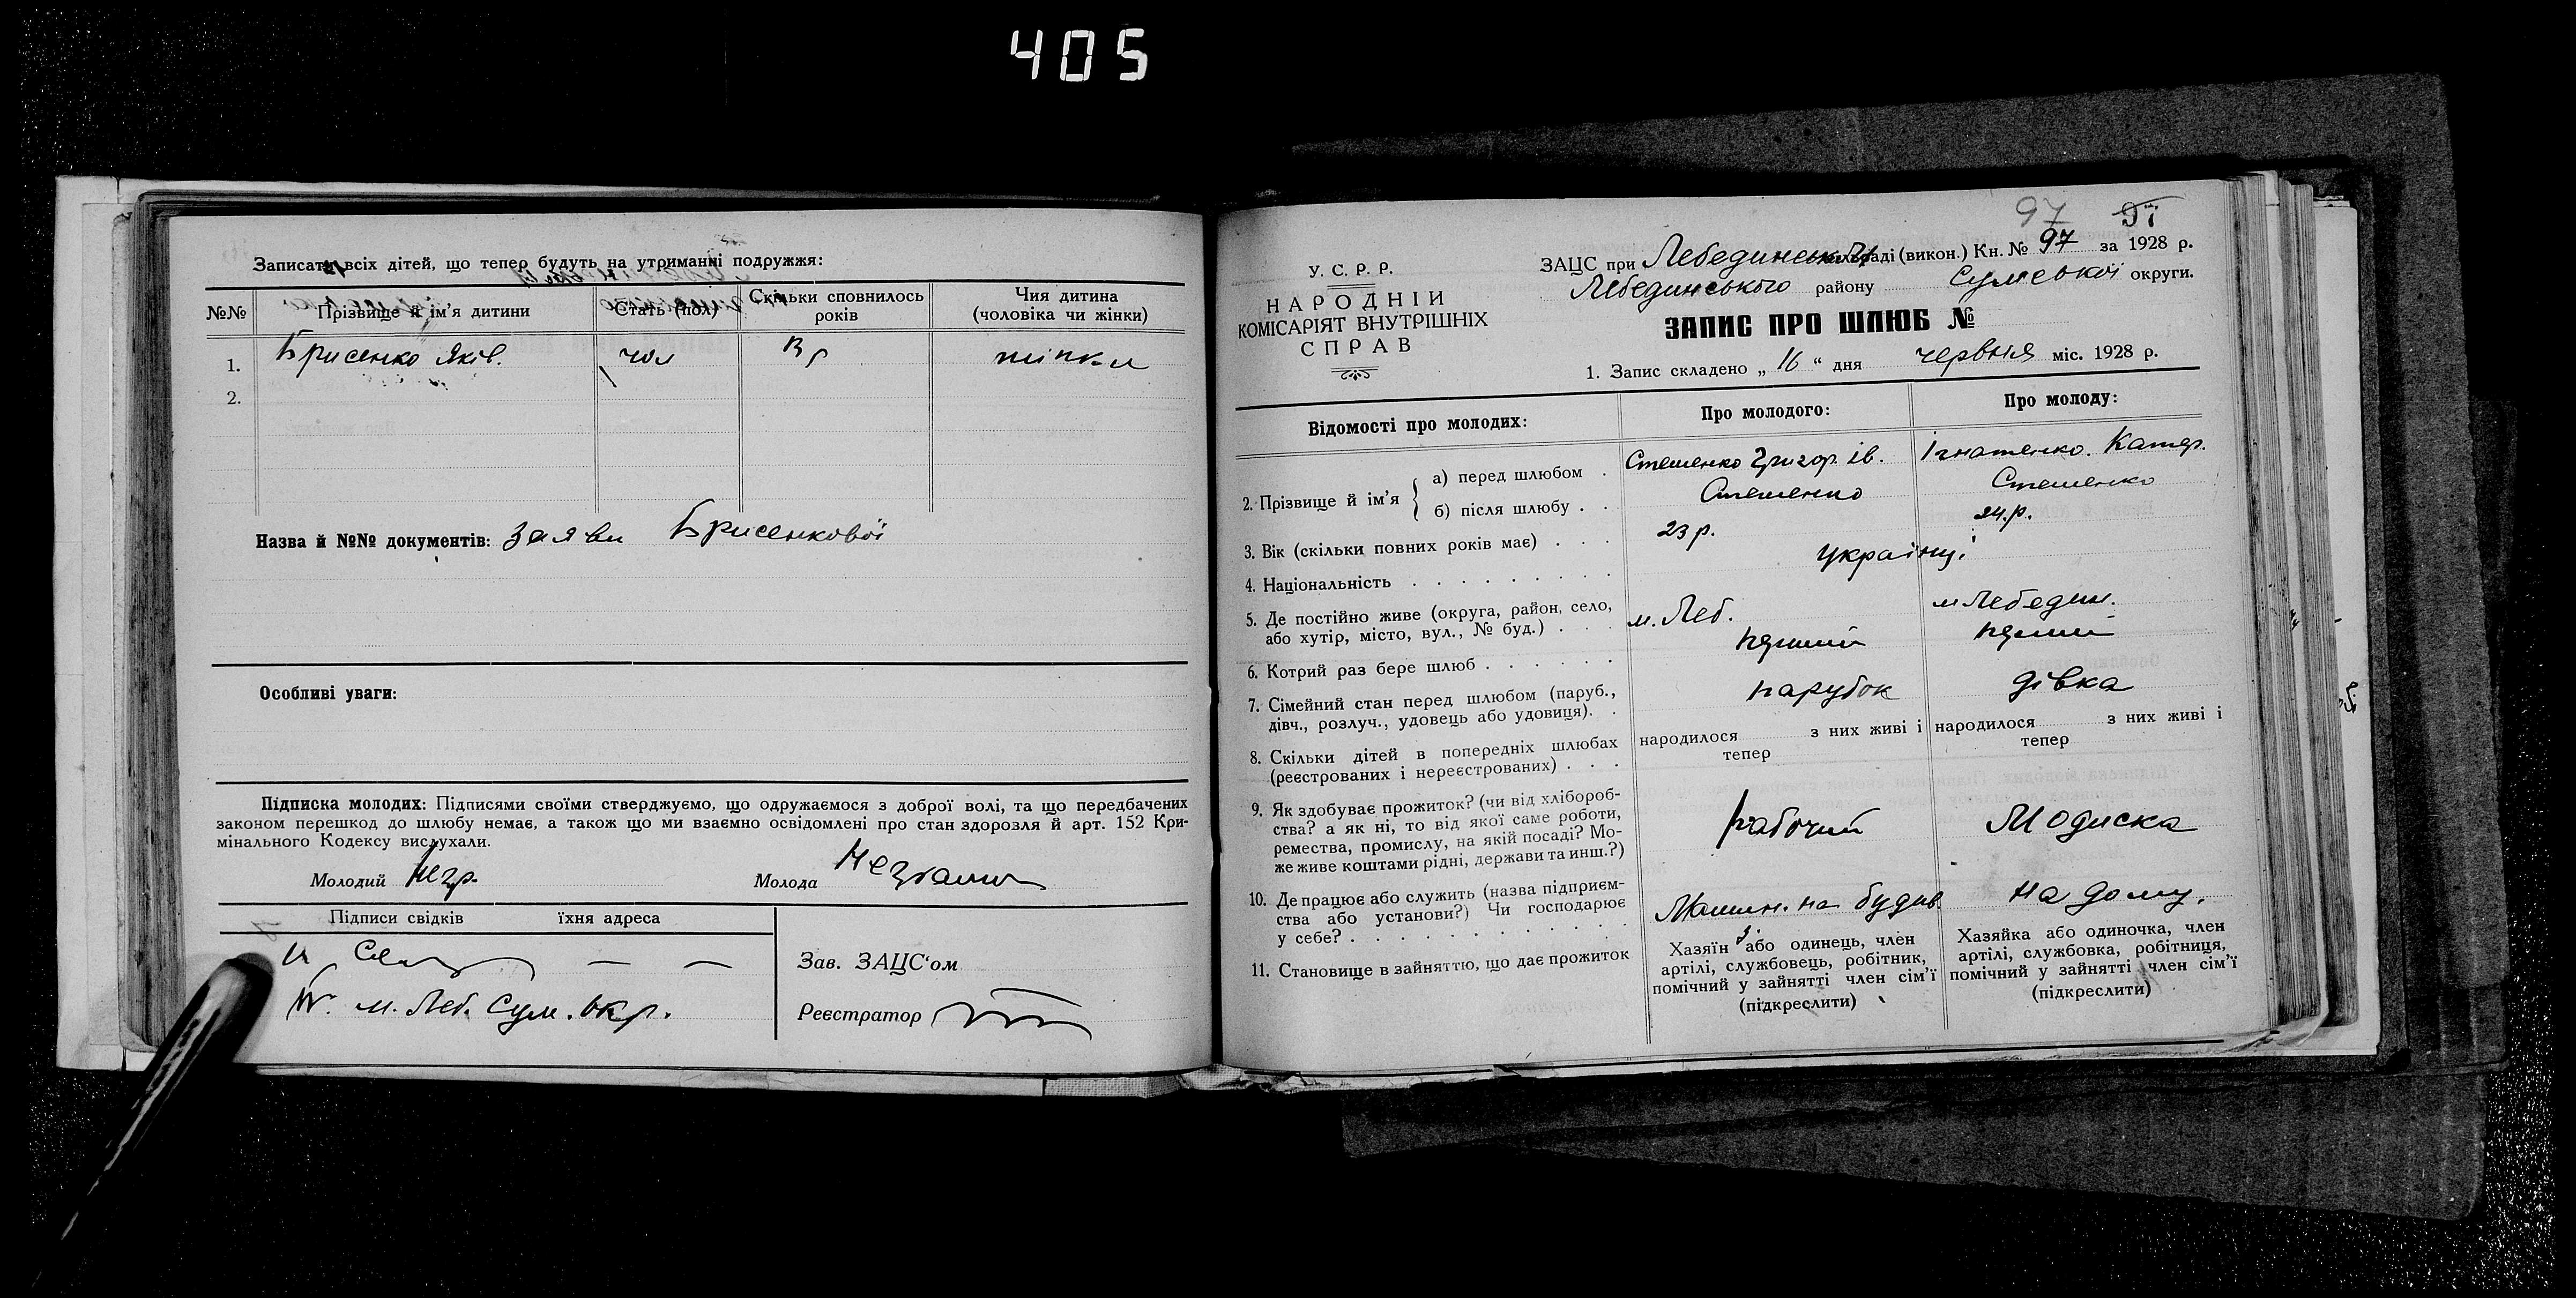 405
Записати всіх дітей, що тепер будуть на утриманні подружжя:
№№ Прізвище й ім'я дитини Стать (пол) Скільки сповнилось років Чия дитина (чоловіка чи жінки)
1. Брисенко Яків. чол
2.
Назва й №№ документів: заяви Брисенкової
Особливі уваги:
Підписка молодих: Підписями своїми стверджуємо, що одружаємося з доброї волі, та що передбачених
законом перешкод до шлюбу немає, а також що ми взаємно освідомлені про стан здоровля й арт. 152 Кри-
мінального Кодексу вислухали.
Молодий Негр. Молода
Підписи свідків їхня адреса
Зав. ЗАЦС'ом
м. Леб. Сум. окр.
Реєстратор
97 97
У. С. Р. Р.
НАРОДНІЙ
КОМІСАРІЯТ ВНУТРІШНІХ
СПРАВ
ЗАЦС при Лебединській раді (викон.) Кн. № 97 за 1928 р.
Лебединського району Сумської округи.
ЗАПИС ПРО ШЛЮБ №
1. Запис складено „ 16 “ дня червня міс. 1928 р.
Відомості про молодих: Про молодого: Про молоду:
2. Прізвище й ім'я
а) перед шлюбом . Стешенко Григор. ів. Ігнатенко. Катер.
б) після шлюбу . . Стешенко Стешенко
3. Вік (скільки повних років має) . . . 23 р. 24. р.
4. Національність . . . . . . . . . українці
5. Де постійно живе (округа, район, село,
або хутір, місто, вул., № буд.) . . . м. Леб. м Лебедин.
6. Котрий раз бере шлюб . . . . . . перший перший
7. Сімейний стан перед шлюбом (паруб.,
дівч., розлуч., удовець або удовиця). . парубок дівка
8. Скільки дітей в попередніх шлюбах
(реєстрованих і нереєстрованих) . . .
народилося з них живі і
тепер
народилося з них живі і
тепер
9. Як здобуває прожиток? (чи від хлібороб-
ства? а як ні, то від якої саме роботи,
ремества, промислу, на якій посаді? Мо-
же живе коштами рідні, держави та инш.?)
рабочий Модиска
10. Де працює або служить (назва підприєм-
ства або установи?) Чи господарює
у себе? . . . . . . . . . . . .
Машин. на будів. на дому.
11. Становище в зайняттю, що дає прожиток
Хазяїн або одинець, член
артілі, службовець, робітник,
помічний у зайнятті член сім'ї
(підкреслити)
Хазяйка або одиночка, член
артілі, службовка, робітниця,
помічний у зайнятті член сім'ї
(підкреслити)